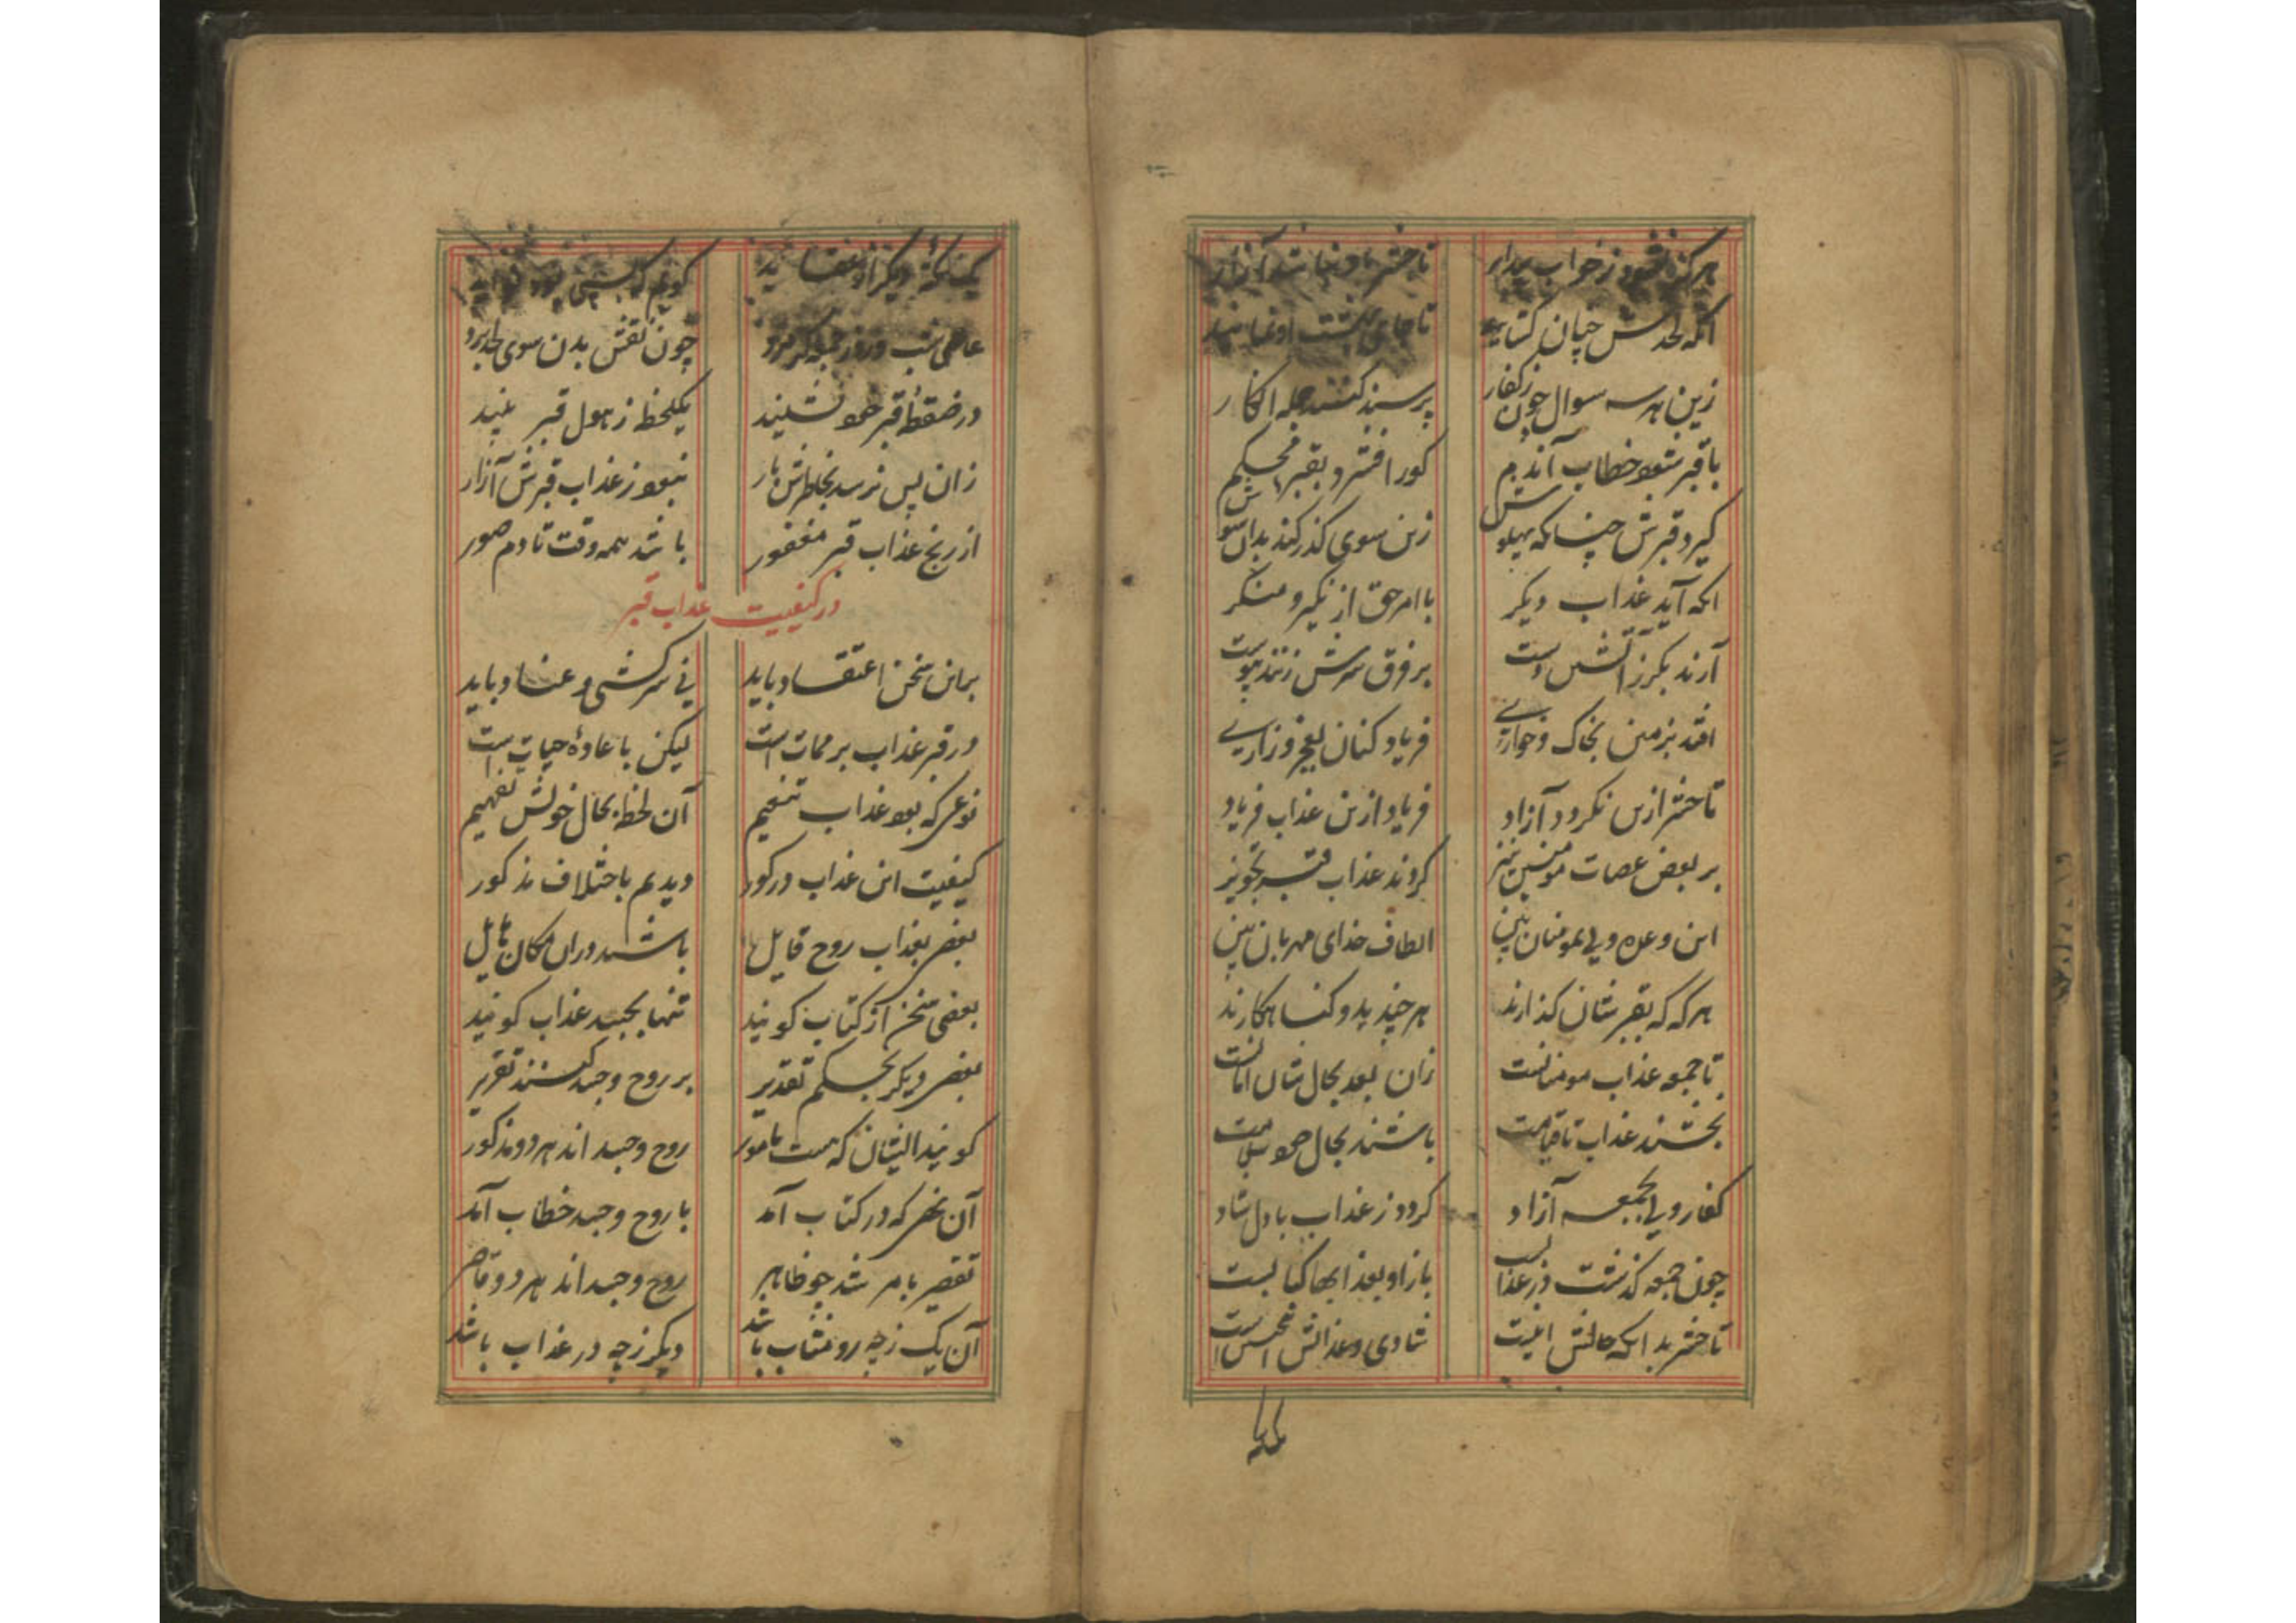 هرگز نشود ز خواب بیدار تا حشر
آنکه لحدش چنان کشاید تا جای بهشت او نماید
زین هر سه سوال چون ز کفار پرسند کنند جمله انکار
با قبر شود خطاب آندم کور افشر و بقبر محکم
گیرد قبرش چنانکه پهلوش زین سوی گذر کند بدان سوش
آنکه آید عذاب دیگر با امر حق از نکیر و منکر
آرند بگرز آتشین دست بر فرق سرش زنند پیوست
افتد بزمین بخاک و خواری فریاد کنان بعجز و زاری
تا حشر ازین نگردد آزاد فریاد ازین عذاب فریاد
بر بعض عصات مومنین نیز کردند عذاب قبر تجویز
این وعده ولی بمومنان بین الطاف خدای مهربان بین
هر که که بقبرشان گذارند هر چند بد و گناهکارند
تا جمعه عذاب مومنانست زان بعد بحال شان امانست
بخشند عذاب تا قیامت باشند بحال خود سلامت
کفار ولی بجمعه آزاد گردد ز عذاب با دل شاد
چون جمعه گذشت در عذاب باز او بعذابها
تا حشر بدانکه حالش اینست شادی و عذابش
یک نکته دیگر از عقاید گویم که
عاصی شب و روز جمعه گر مرد چون نقش بدن سوی لحد برد
در ضغطه قبر خود نشیند یکلحظه ز هول قبر بیند
زان پس نرسد بخاطرش بار نبود ز عذاب قبرش آزار
از رنج عذاب قبر مغفور باشد همه وقت تا دم صور
در کیفیت عذاب قبر
بر این سخن اعتقاد باید نی سرکشی و عناد باید
در قبر عذاب بر ممات است لیکن با عاده حیات است
نوعی که بود عذاب تنعیم آن لحظه بحال خویش تفهیم
کیفیت این عذاب در گور دیدیم باختلاف مذکور
بعضی بعذاب روح قایل باشند در آن مکان
بعضی سخن از کتاب گویند تنها بجسد عذاب گویند
بعضی دیگر بحکم تقدیر بر روح و جسد کنند تقریر
گویند ایشان که هست مامور روح و جسد اند هر دو مذکور
آن نهی که در کتاب آمد با روح و جسد خطاب آمد
تقصیر بامر شد چو ظاهر روح و جسد اند هر دو قاصر
آن یک ز چه رو مثاب باشد دیگر ز چه در عذاب باشد